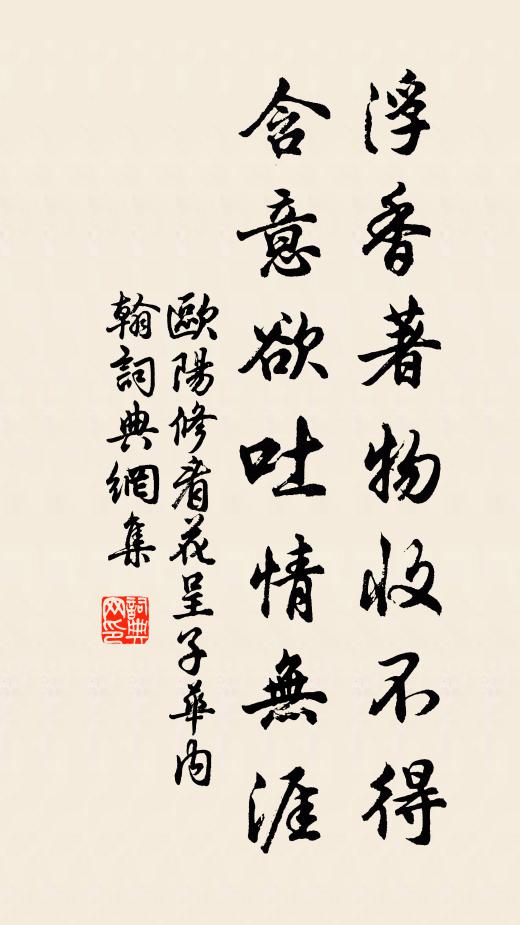 浮香著物收不得
含意欲吐情無涯
歐陽修看花呈子華內
翰詞典網集
詞典
网印